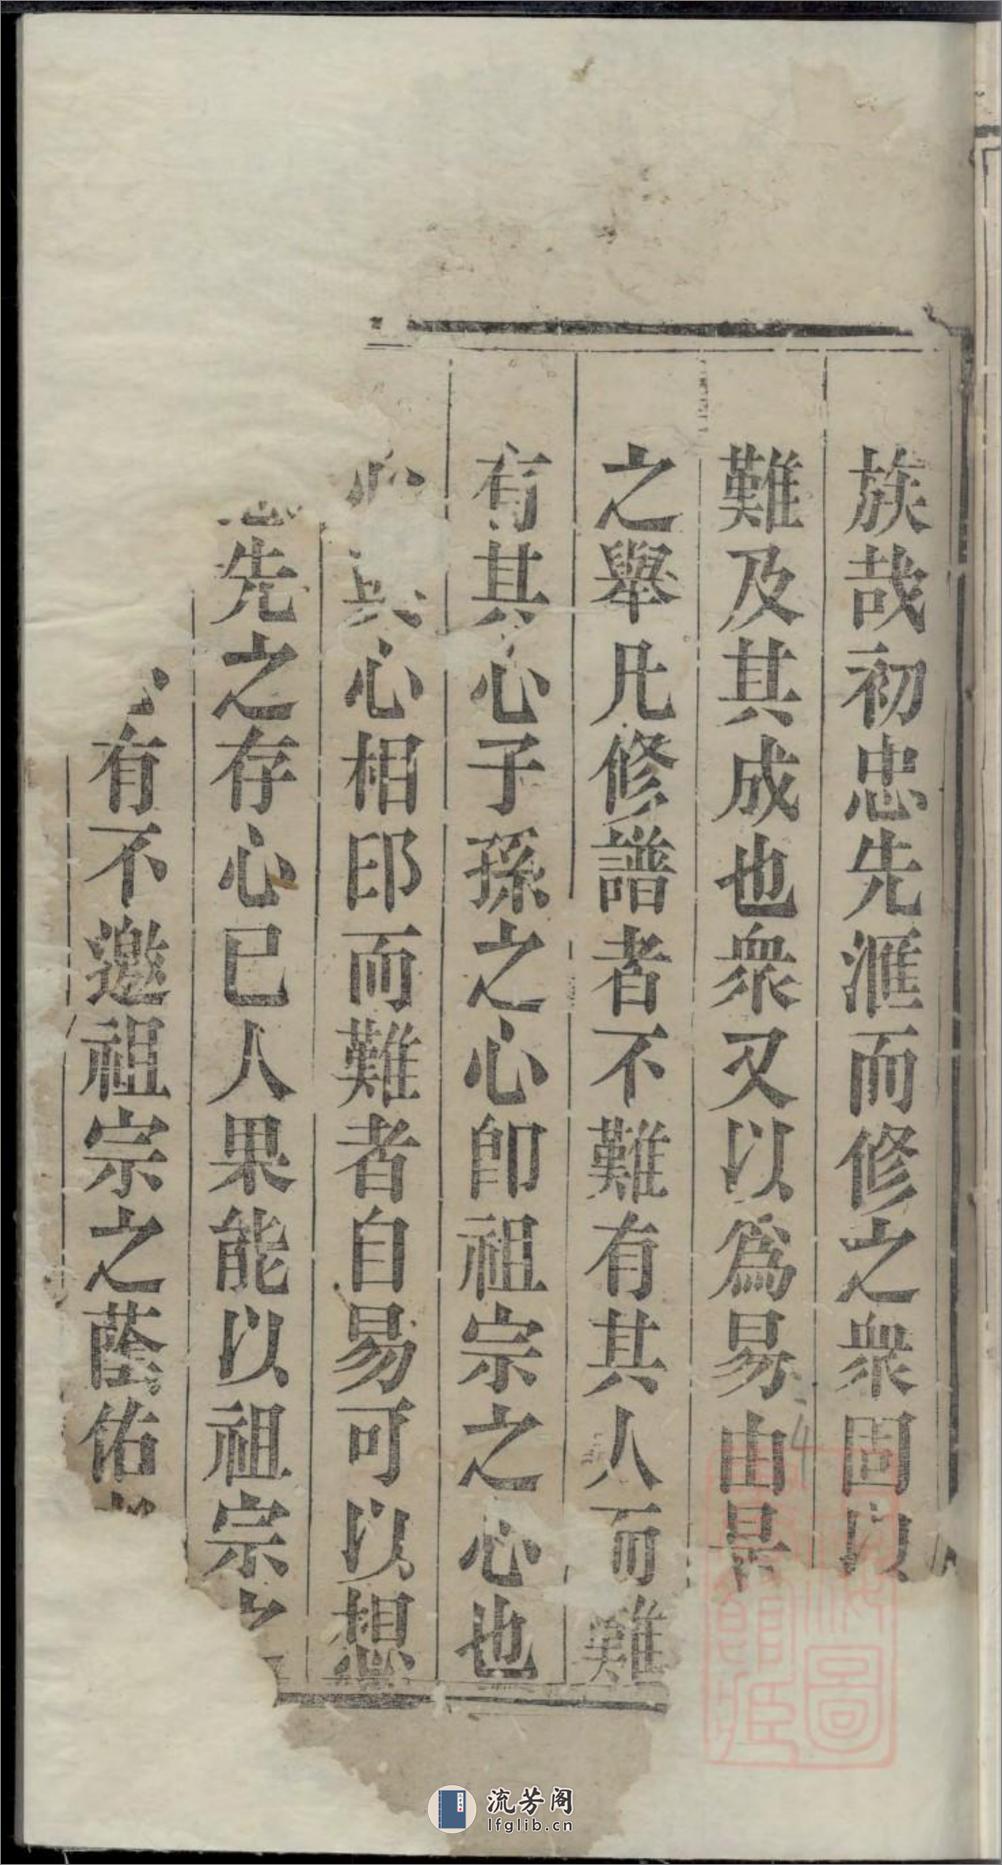 族哉初忠先滙而修之衆固以
難及其成也衆又以爲易由是
之舉凡修譜者不難有其人而難
有其心子孫之心卽祖宗之心也
其心相印而難者自易可以想
先之存心已人果能以祖宗
有不邀祖宗之蔭佑
流芳阁
lfglib.cn